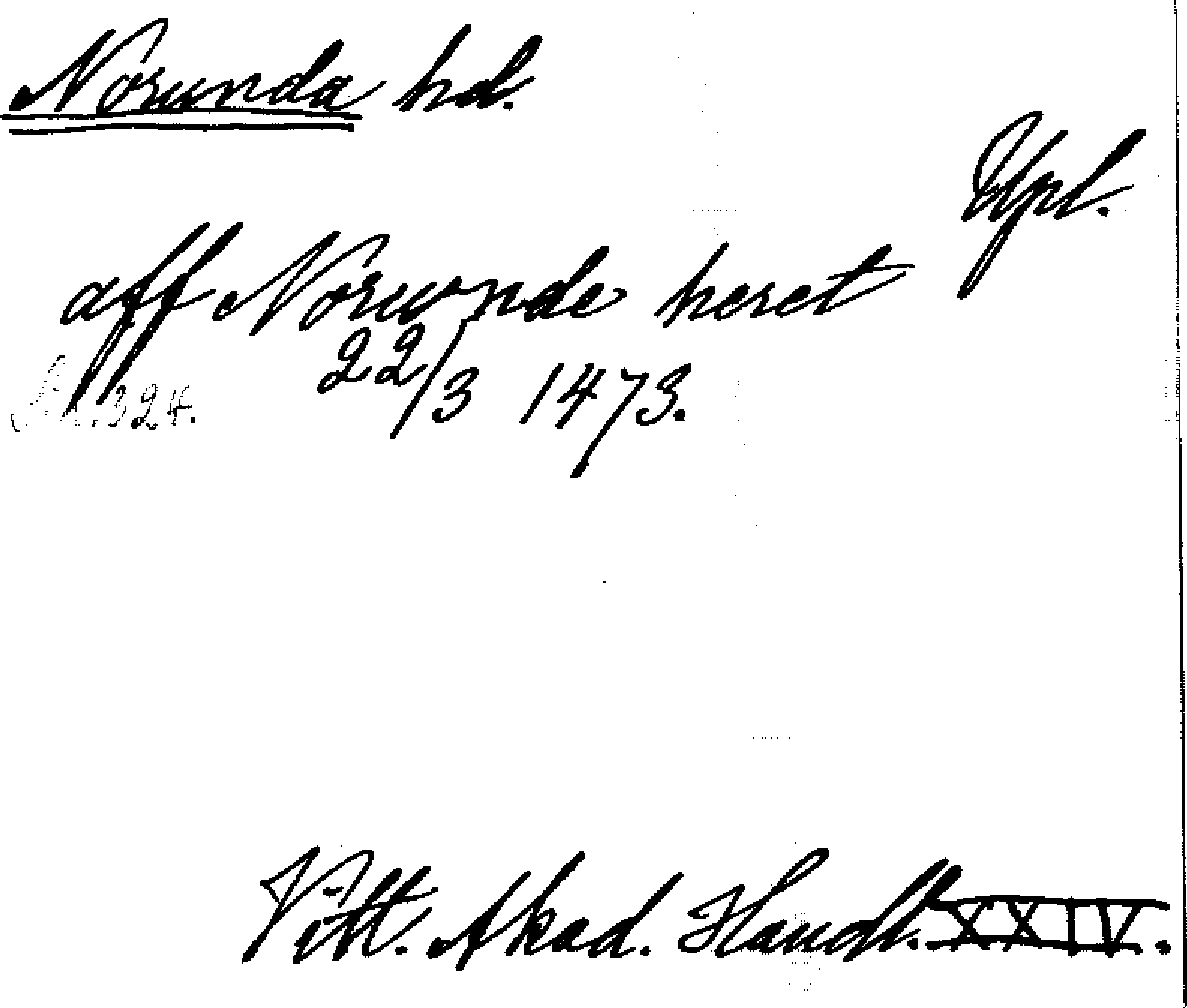 Norunda hd.
Upl.
aff Norunde heret
22/3 1473.
324.
Vitt. Akad. Handl. XXIV.